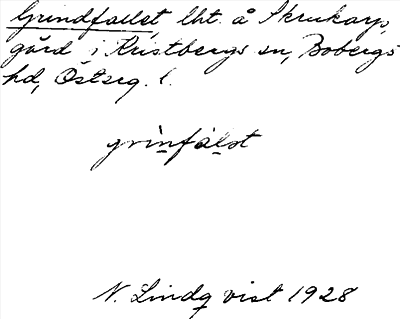 Grindfallet, lht. å Skrukarps
gård i Kristbergs sn, Bobergs
hd, Österg. l.
grìnfálst
N. Lindqvist 1928